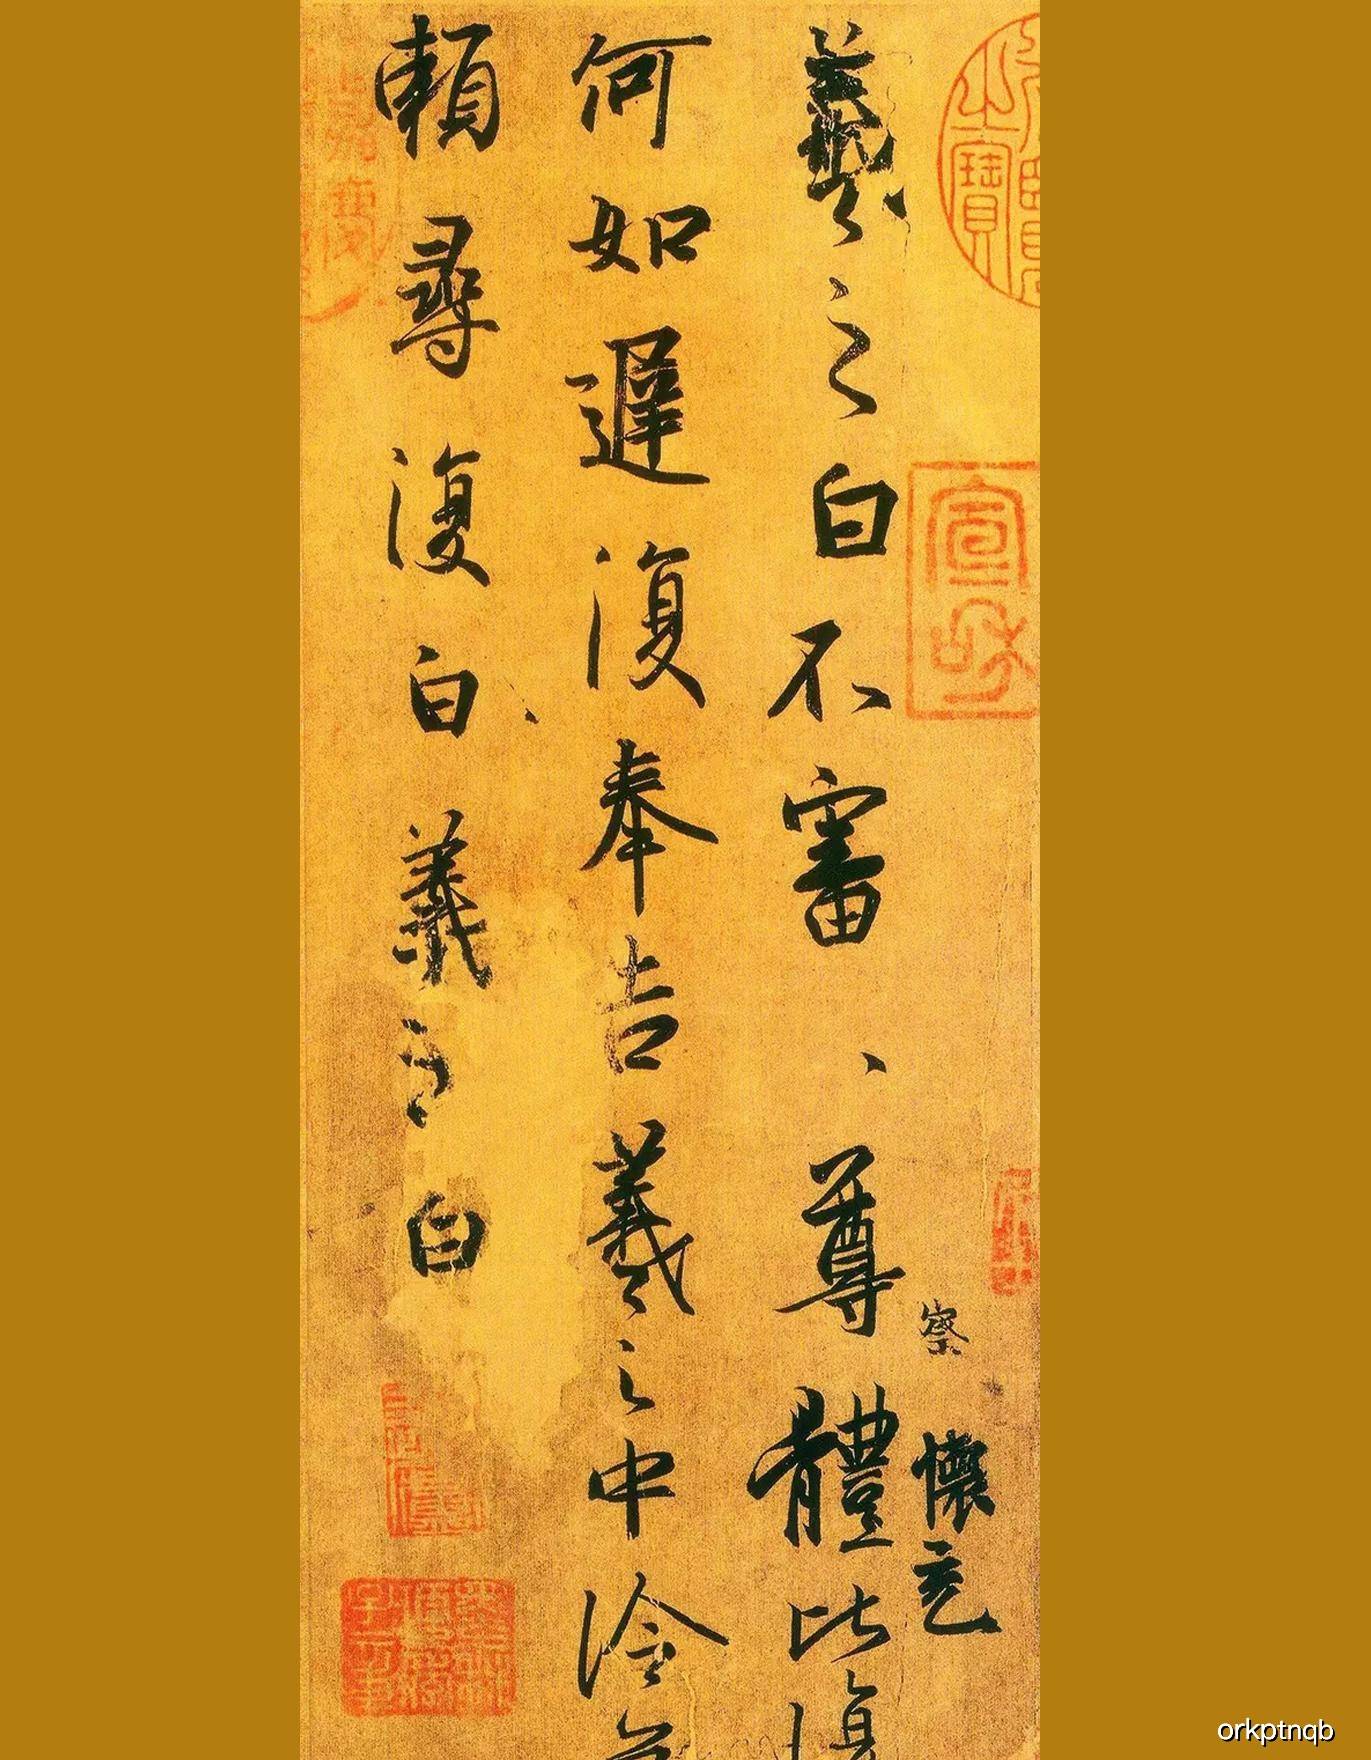 羲之白不審、尊體比復
何如遲復奉告羲之中冷無
賴尋復白羲之白
察
懷充
宣和
orkptnqb